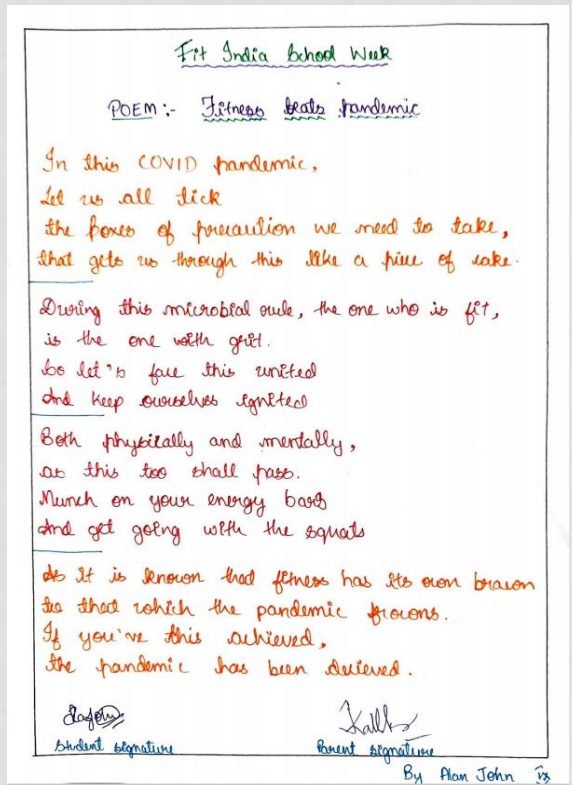 Fit India School Week
POEM :- Fitness beats pandemic
In this COVID pandemic,
Let us all tick
the boxes of precaution we need to take,
that gets us through this like a piece of cake.
During this microbial rule, the one who is fit,
is the one with grit.
So let's face this united
And keep ourselves ignited
Both physically and mentally,
as this too shall pass.
Munch on your energy bars
And get going with the squats
As it is known that fitness has its own
to that which the pandemic frowns.
If you've this achieved,
the pandemic has been
Student signature
Parent signature
By Alan John IX